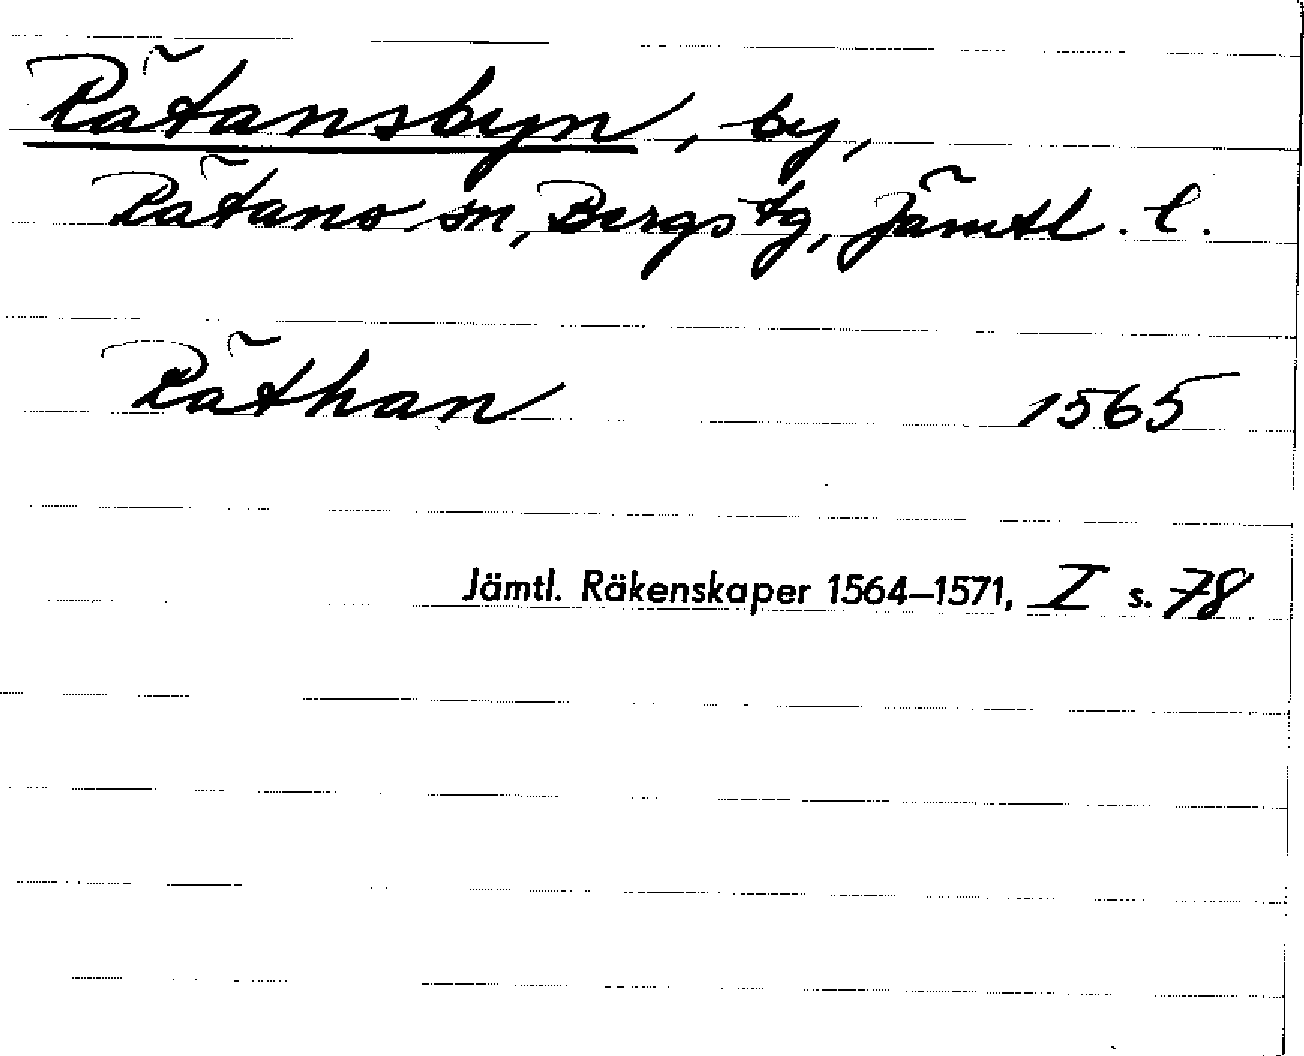 Rätansbyn, by,
Rätans sn, Bergs tg, Jämtl. l.
Räthan 1565
Jämtl. Räkenskaper 1564–1571, I s. 78